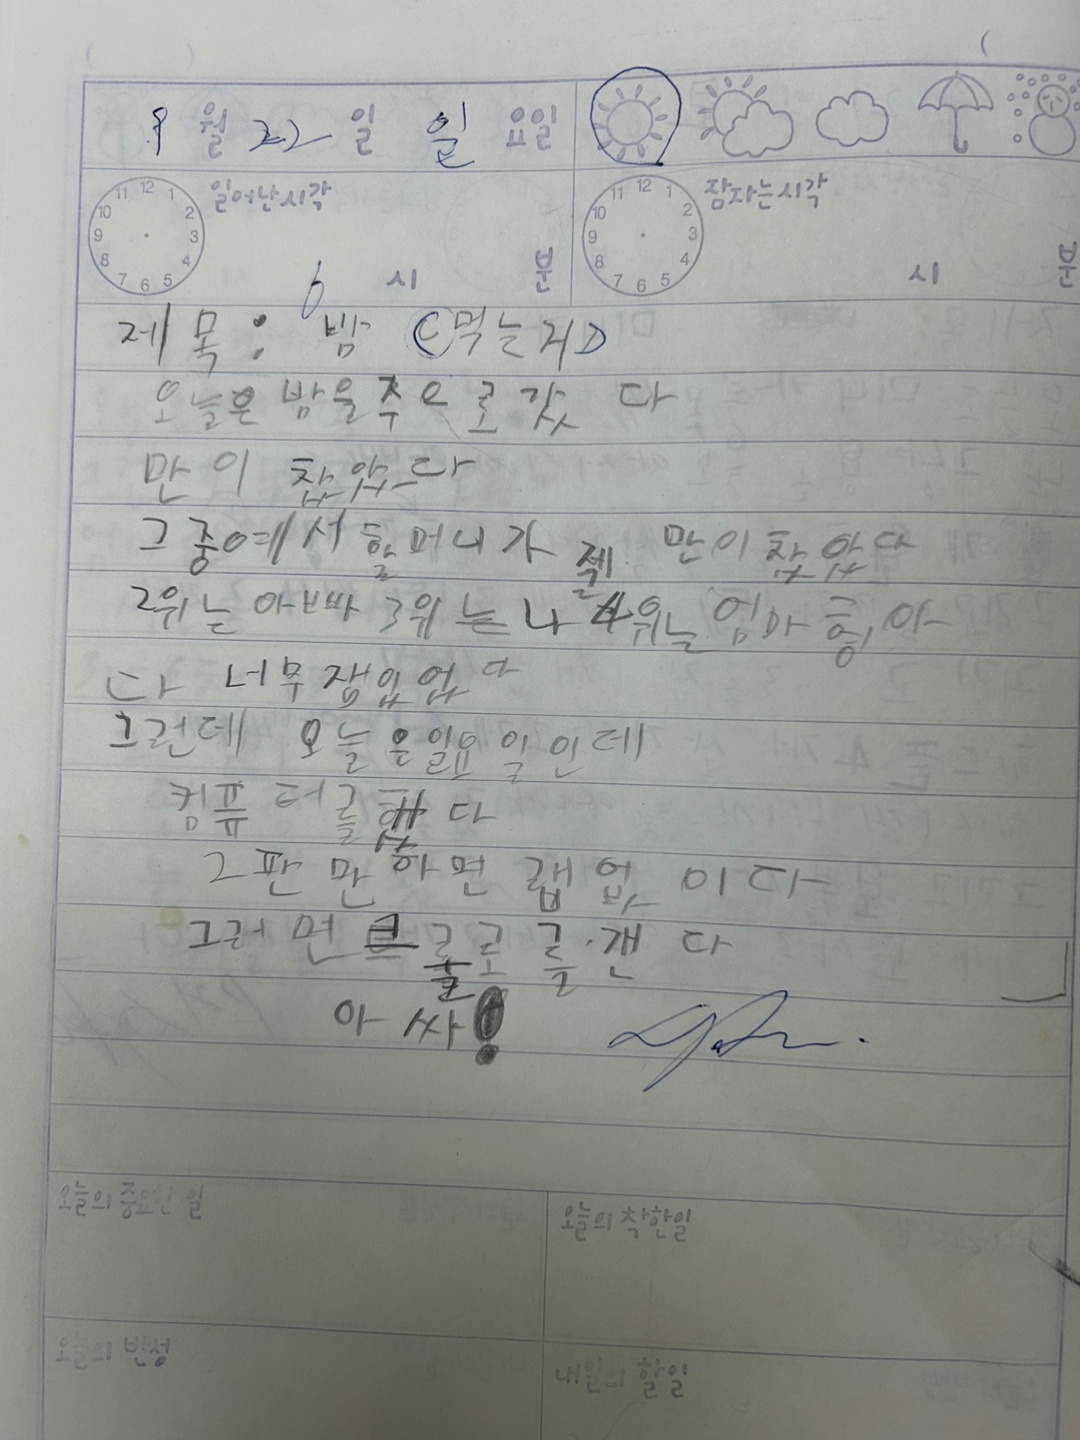 9월 22일 일요일
일어난시각 6시 분 잠자는시각 시 분
제목: 밤 (먹는거)
오늘은 밤을 주으로 갔다
만이 찾았다
그중에서 할머니가 젤 만이 찾았다
2위는 아빠 3위는 나 4위는 엄마 형아
다 너무 잼있었다
그런데 오늘은 일요일인데
컴퓨터를 했다
그판만 하면 랩업이다
그러면 골로를 갠다
아싸!
오늘의 중요한 일 오늘의 착한일
오늘의 반성 내일의 할일